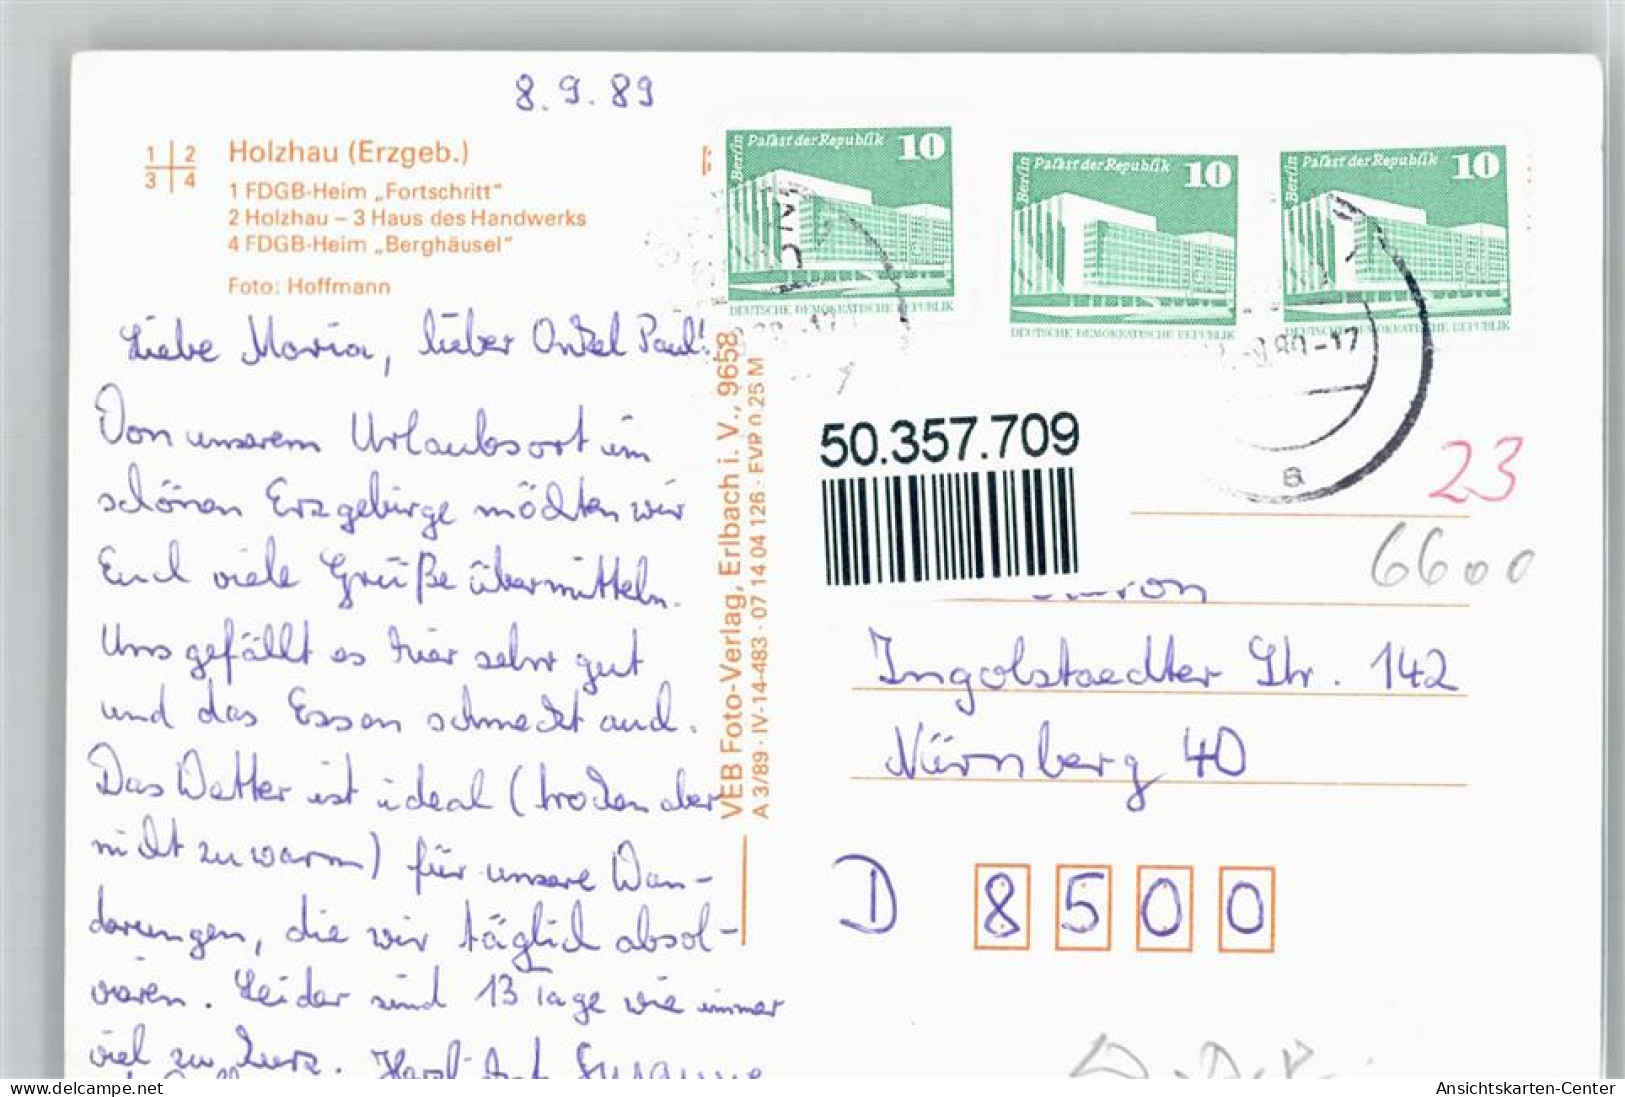 8.9.89
1 2
3 4
Holzhau (Erzgeb.)
1 FDGB-Heim „Fortschritt"
2 Holzhau – 3 Haus des Handwerks
4 FDGB-Heim „Berghäusel"
Foto: Hoffmann
Liebe Maria, lieber Onkel Paul!
Von unserem Urlaubsort im
schönen Erzgebirge möchten wir
Euch viele Grüße übermitteln.
Uns gefällt es hier sehr gut
und das Essen schmeckt auch.
Das Wetter ist ideal (trocken aber
nicht zu warm) für unsere Wan-
derungen, die wir täglich absol-
vieren. Leider sind 13 Tage wie immer
viel zu kurz. Susanne
VEB Foto-Verlag, Erlbach i. V., 9658
A 3/89 · IV-14-483 · 07 14 04 126 · EVP 0,25 M
Berlin Palast der Republik 10
DEUTSCHE DEMOKRATISCHE REPUBLIK
Berlin Palast der Republik 10
DEUTSCHE DEMOKRATISCHE REPUBLIK
Berlin Palast der Republik 10
DEUTSCHE DEMOKRATISCHE REPUBLIK
-17
a
50.357.709
23
6600
Ingolstaedter Str. 142
Nürnberg 40
D 8500
delcampe.net
Ansichtskarten-Center